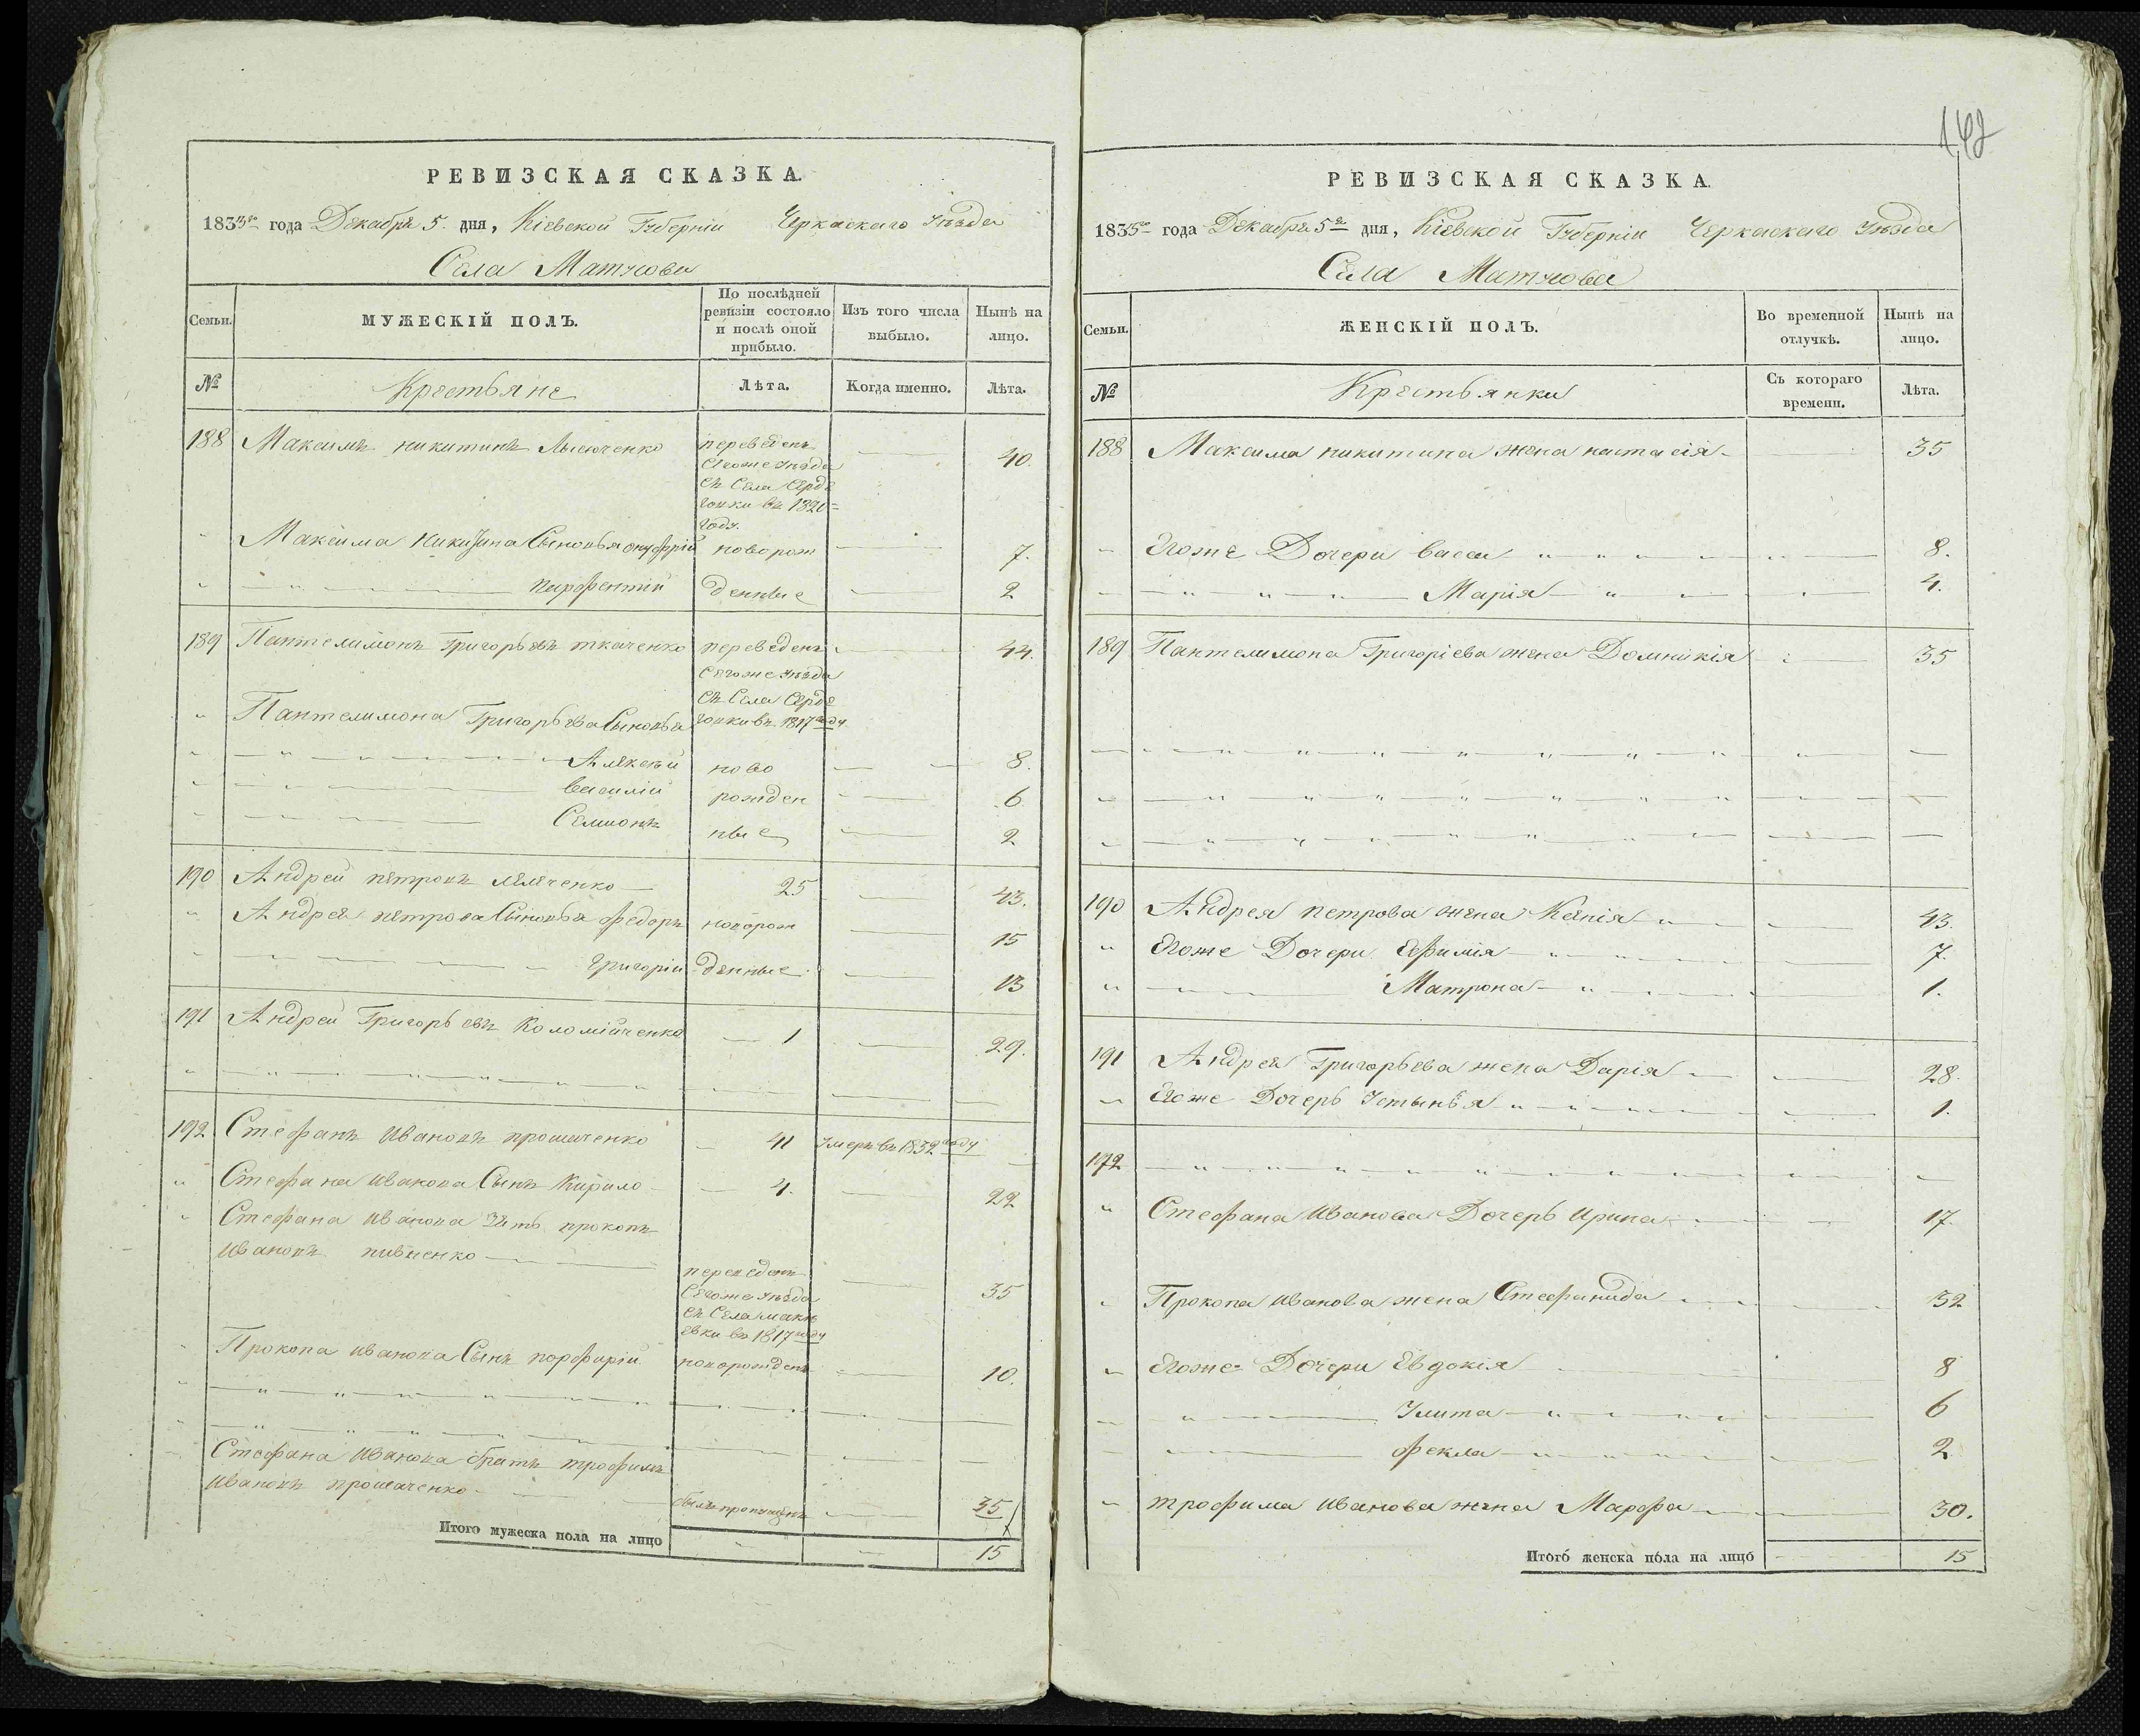 РЕВИЗСКАЯ СКАЗКА.
1833го года Декабря 5. дня, Кіевской Губерніи Черкаскаго Уѣзда
Села Матусова
Семьи.
МУЖЕСКІЙ ПОЛЪ.
По послѣдней ревизіи состояло и послѣ оной прибыло.
Изъ того числа выбыло.
Нынѣ на лицо.
№
Крестьяне
Лѣта.
Когда именно.
Лѣта.
188 Максимъ никитинъ переведенъ 40.
Сегоже уѣзда
съ Села Серде
году.
Максима никитина Сыновья онуфрій новорож 7.
денные 2
189 Пантелимонъ Григорьевъ ткаченко переведенъ 44.
Сегоже уѣзда
съ Села Серде
Пантелимона Григорьева Сыновья въ 1817 году
Алексѣй ново 8.
василій рожден 6.
Семионъ ные 2
190 Андрей петровъ 25 43.
Андрея петрова Сыновья федоръ новорож 15
григорій денные 13
191 Андрей Григорьевъ Коломійченко 1 29.
192 Стефанъ ивановъ прошаченко 41 умеръ въ 1832 году
Стефана иванова Сынъ кирило 4. 22
Стефана иванова Зять прокопъ
ивановъ пивненко
переведенъ 35
Сегоже уѣзда
съ Села макѣ
евки въ 1817 году
Прокопа иванова Сынъ порфирій новорожденъ 10.
Стефана иванова братъ трофимъ
ивановъ прошаченко былъ пропущенъ 35
Итого мужеска пола на лицо 15
142
РЕВИЗСКАЯ СКАЗКА.
1835го года Декабря 5го дня, Кіевской Губерніи Черкаскаго Уѣзда
Села Матусова
Семьи.
ЖЕНСКІЙ ПОЛЪ.
Во временной отлучкѣ.
Нынѣ на лицо.
№
Крестьянки
Съ котораго времени.
Лѣта.
188 Максима никитина жена настасія 35
Егоже Дочери васса 8.
Марія 4.
189 Пантелимона Григоріева жена Домникія 35
190 Андрея петрова жена Ксенія 43.
Егоже Дочери Ефимія 7.
Матрона 1.
191 Андрея Григорьева жена Дарія 28.
Егоже Дочерь Устынья 1.
192
Стефана иванова Дочерь ирина 17.
Прокопа иванова жена Стефанида 32
Егоже Дочери Евдокія 8
Улита 6
фекла 2
трофима иванова жена Марфа 30.
Итого женска пола на лицо 15